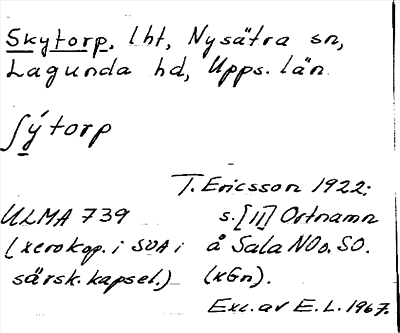 Skytorp, lht, Nysätra sn,
Lagunda hd, Upps. län
ʃýtorp
T. Ericsson 1922:
ULMA 739 s. [11] Ortnamn
(xerokop. i SOA i å Sala NOo. SO.
särsk. kapsel.) (xGn).
Exc. av E. L. 1967.